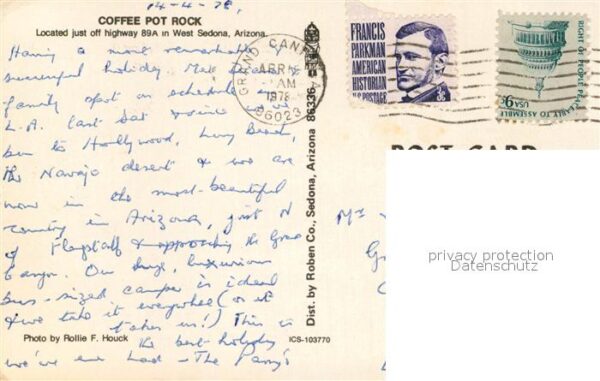 14-4-78,
COFFEE POT ROCK
Located just off highway 89A in West Sedona, Arizona.
Having a most remarkable
successful holiday. Met
family spot on schedule in
L.A. last Sat
to Hollywood, Long Beach,
the Navajo desert & now are
now in the most beautiful
country in Arizona, just N
of Flagstaff & approaching the Grand
Canyon. Our huge, luxurious
bus-sized camper is ideal
& we take it everywhere (or it
takes us!) This is
the best holiday
we've ever had - The
Photo by Rollie F. Houck
ICS-103770
Dist. by Roben Co., Sedona, Arizona 86336
GRAND CANYON
APR 15
AM
1978
86023
FRANCIS
PARKMAN
AMERICAN
HISTORIAN
U.S. POSTAGE
3c
RIGHT OF PEOPLE PEACEABLY TO ASSEMBLE
USA 9c
POST CARD
privacy protection
Datenschutz